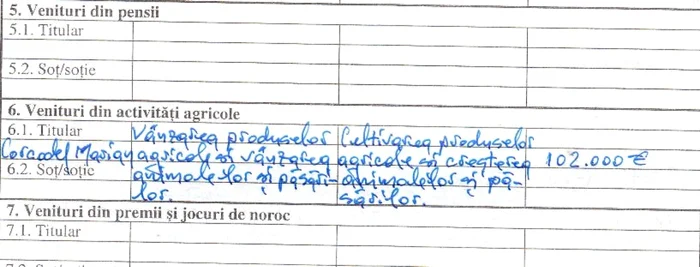 5. Venituri din pensii
5.1. Titular
5.2. Soț/soție
6. Venituri din activități agricole
6.1. Titular Vânzarea produselor Cultivarea produselor
Corcodel Marian agricole și vânzarea agricole și creșterea 102.000 €
6.2. Soț/soție animalelor și păsări- animalelor și pă-
lor. sărilor.
7. Venituri din premii și jocuri de noroc
7.1. Titular